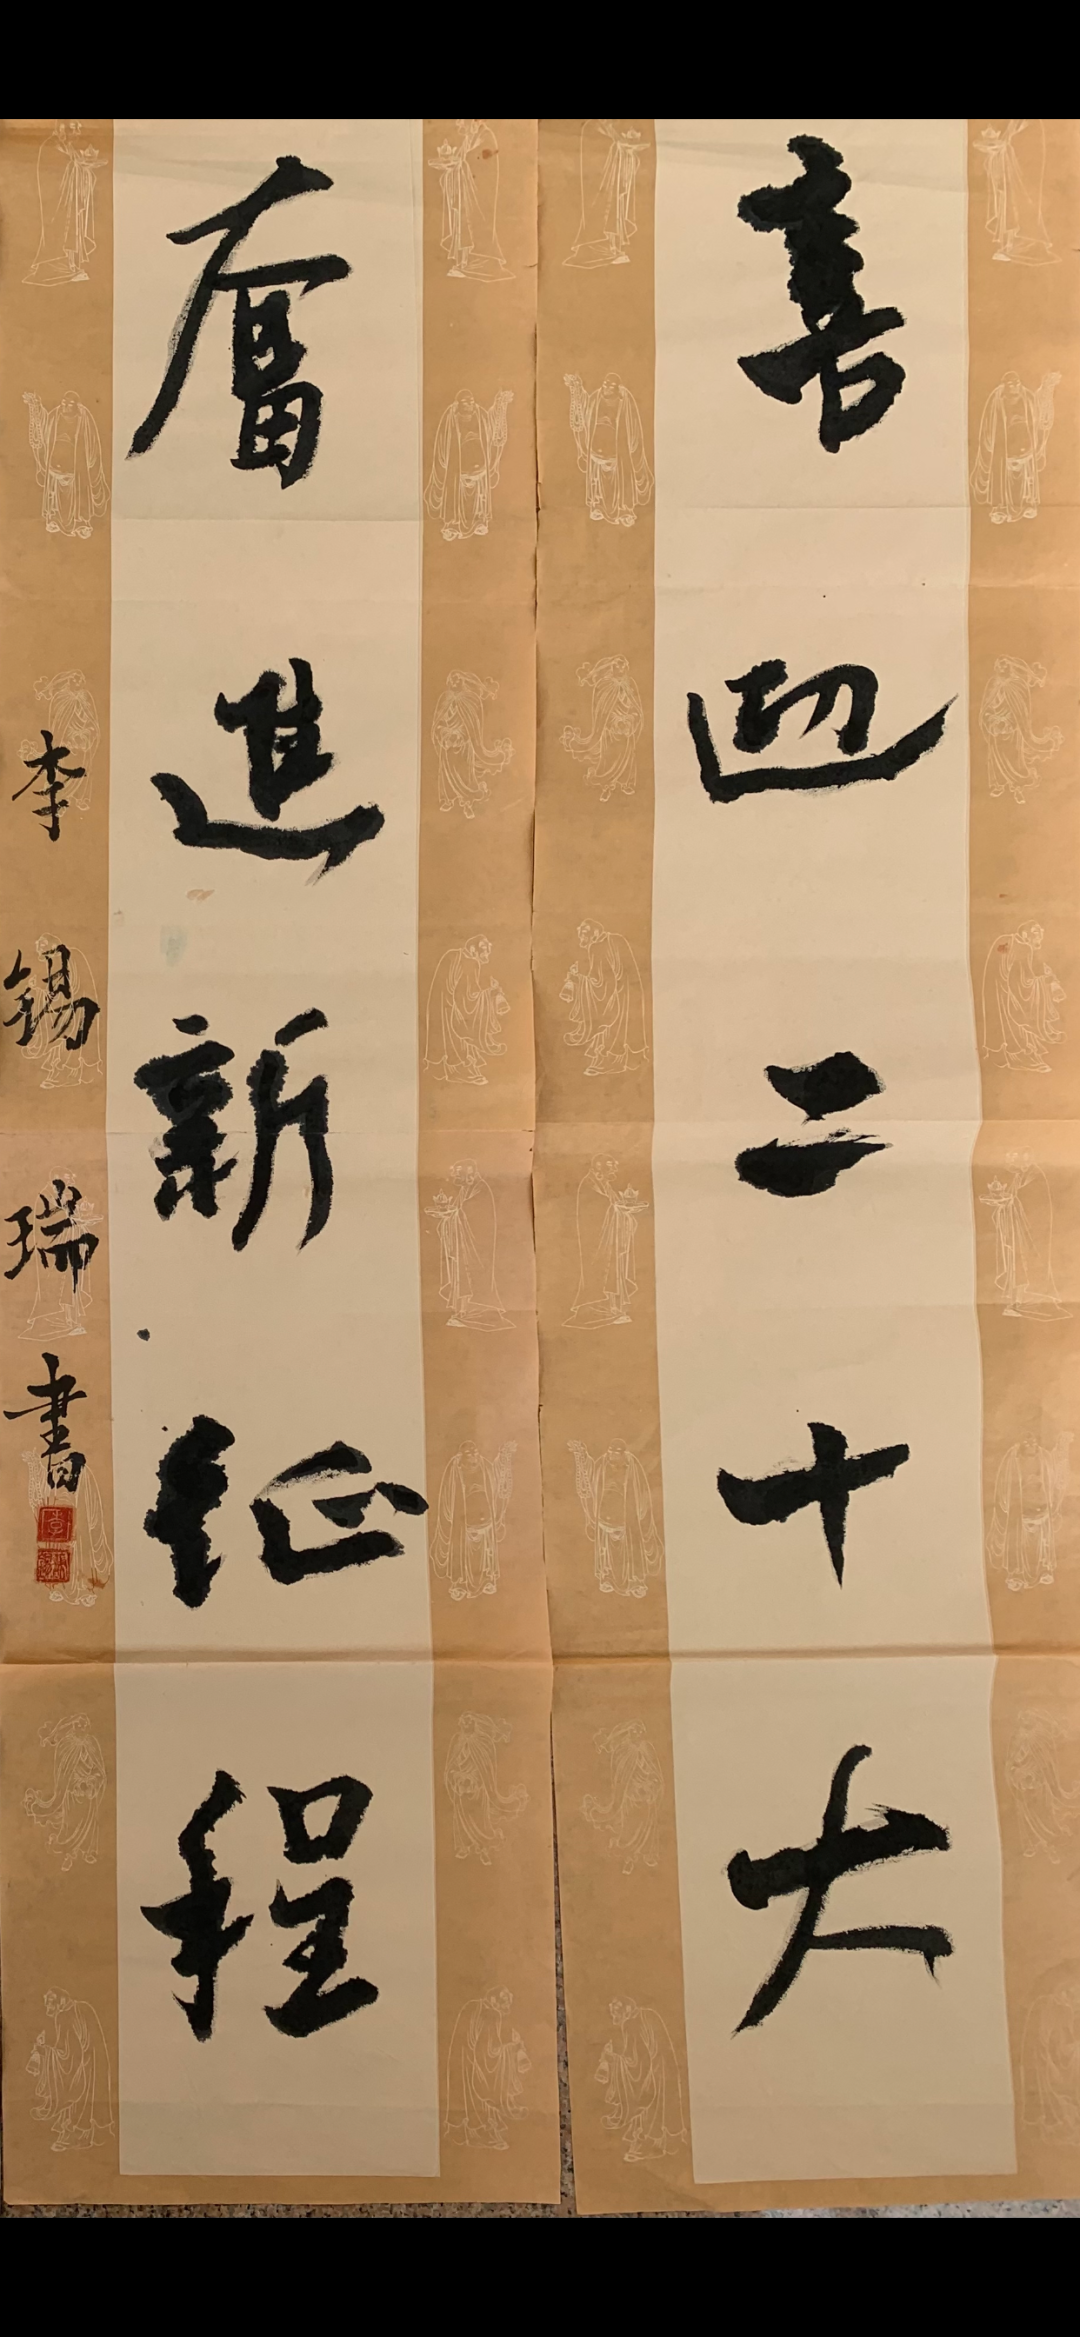 喜迎二十大
奮進新征程
李錫瑞書